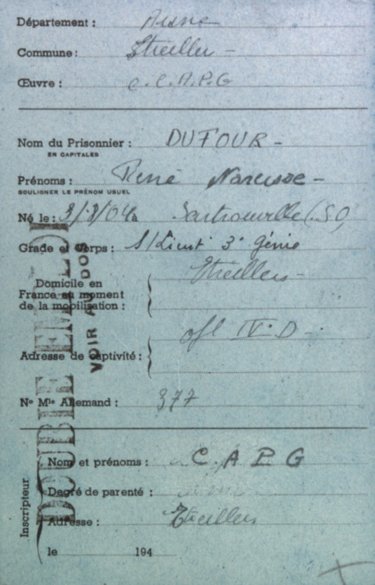 Département : Aisne
Commune : Itreillers -
Œuvre : C.C.A.P.G
Nom du Prisonnier : DUFOUR -
EN CAPITALES
Prénoms : René Narcisse -
SOULIGNER LE PRÉNOM USUEL
Né le : Sartrouville (S.O)
Grade et Corps : S/Lieut 3e Génie
Domicile en
France au moment
de la mobilisation :
ofl IV. D
Adresse de captivité :
No Mle Allemand : 377
DOUBLE EMPLOI
VOIR AU DOS
Inscripteur
Nom et prénoms : C A P G
Degré de parenté :
Adresse :
le 194